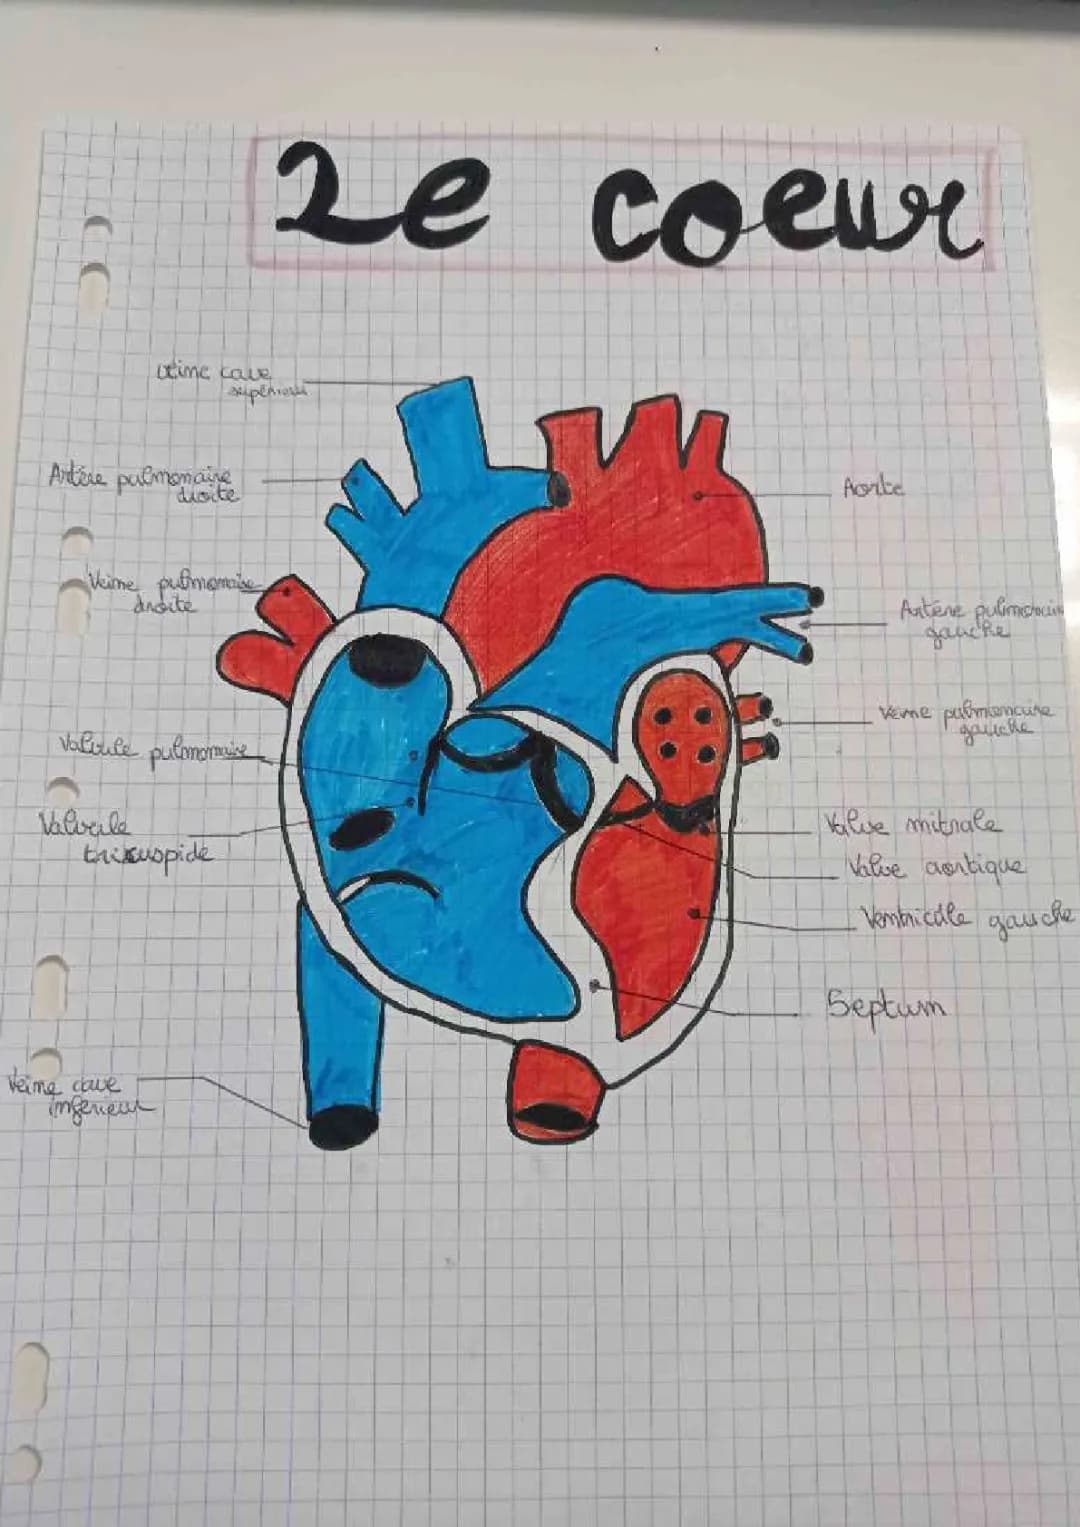 Le coeur
Veine cave
supérieur
Artère pulmonaire
droite
Aorte
Veine pulmonaire
droite
Artère pulmonaire
gauche
Veine pulmonaire
gauche
Valvule pulmonaire
Valvule
tricuspide
Valve mitrale
Valve aortique
Ventricule gauche
Septum
Veine cave
inférieur